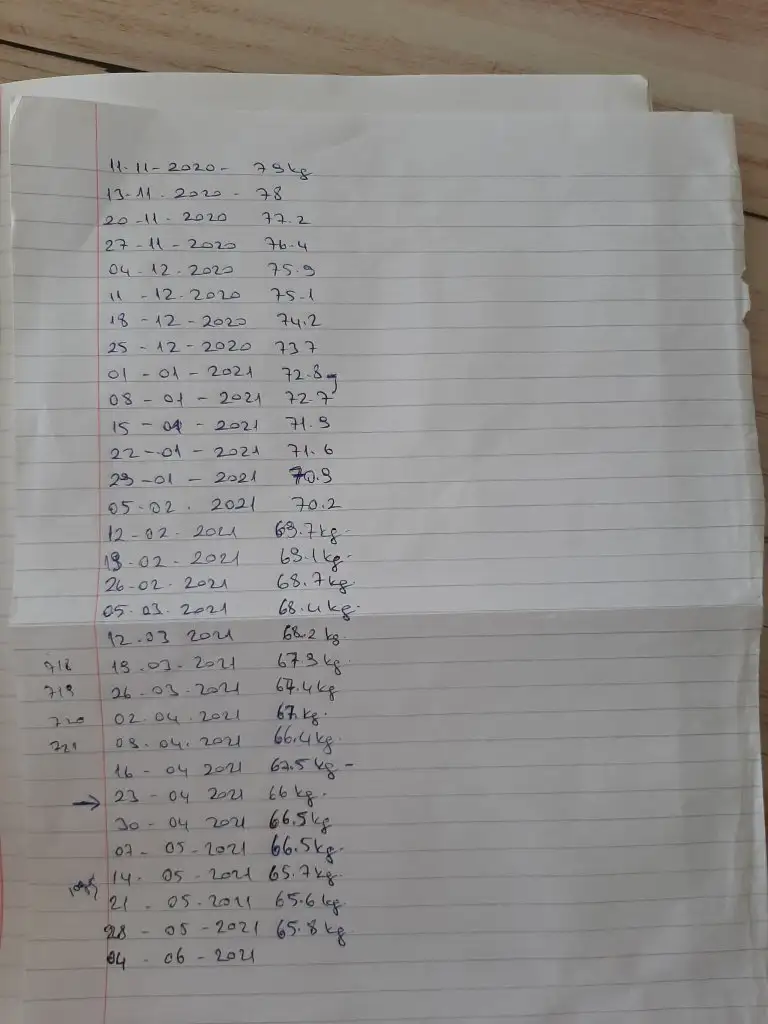 11-11-2020- 79kg
13-11. 2020 - 78
20-11- 2020 77.2
27-11-2020 76.4
04.12.2020 75.9
11-12.2020 75.1
18-12-2020 74.2
25-12-2020 737
01-01-2021 72.8
08-01-2021 72.7
15-01-2021 71.9
22-01-2021 71.6
29-01-2021 70.9
05.02.2021 70.2
12-02.2021 69.7kg.
19.02-2021 69.1kg.
26-02.2021 68.7kg.
05.03.2021 68.4kg.
12.03 2021 68.2 kg.
718 19.03-2021 67.9kg.
719 26.03.2021 67.4kg
720 02.04.2021 67kg.
721 09.04.2021 66.4kg.
16-04 2021 67.5kg-
→ 23-04 2021 66kg.
30-04 2021 66.5kg
07-05-2021 66.5kg.
14.05-2021 65.7kg.
21.05-2021 65.6kg.
28-05-2021 65.8kg
04-06-2021